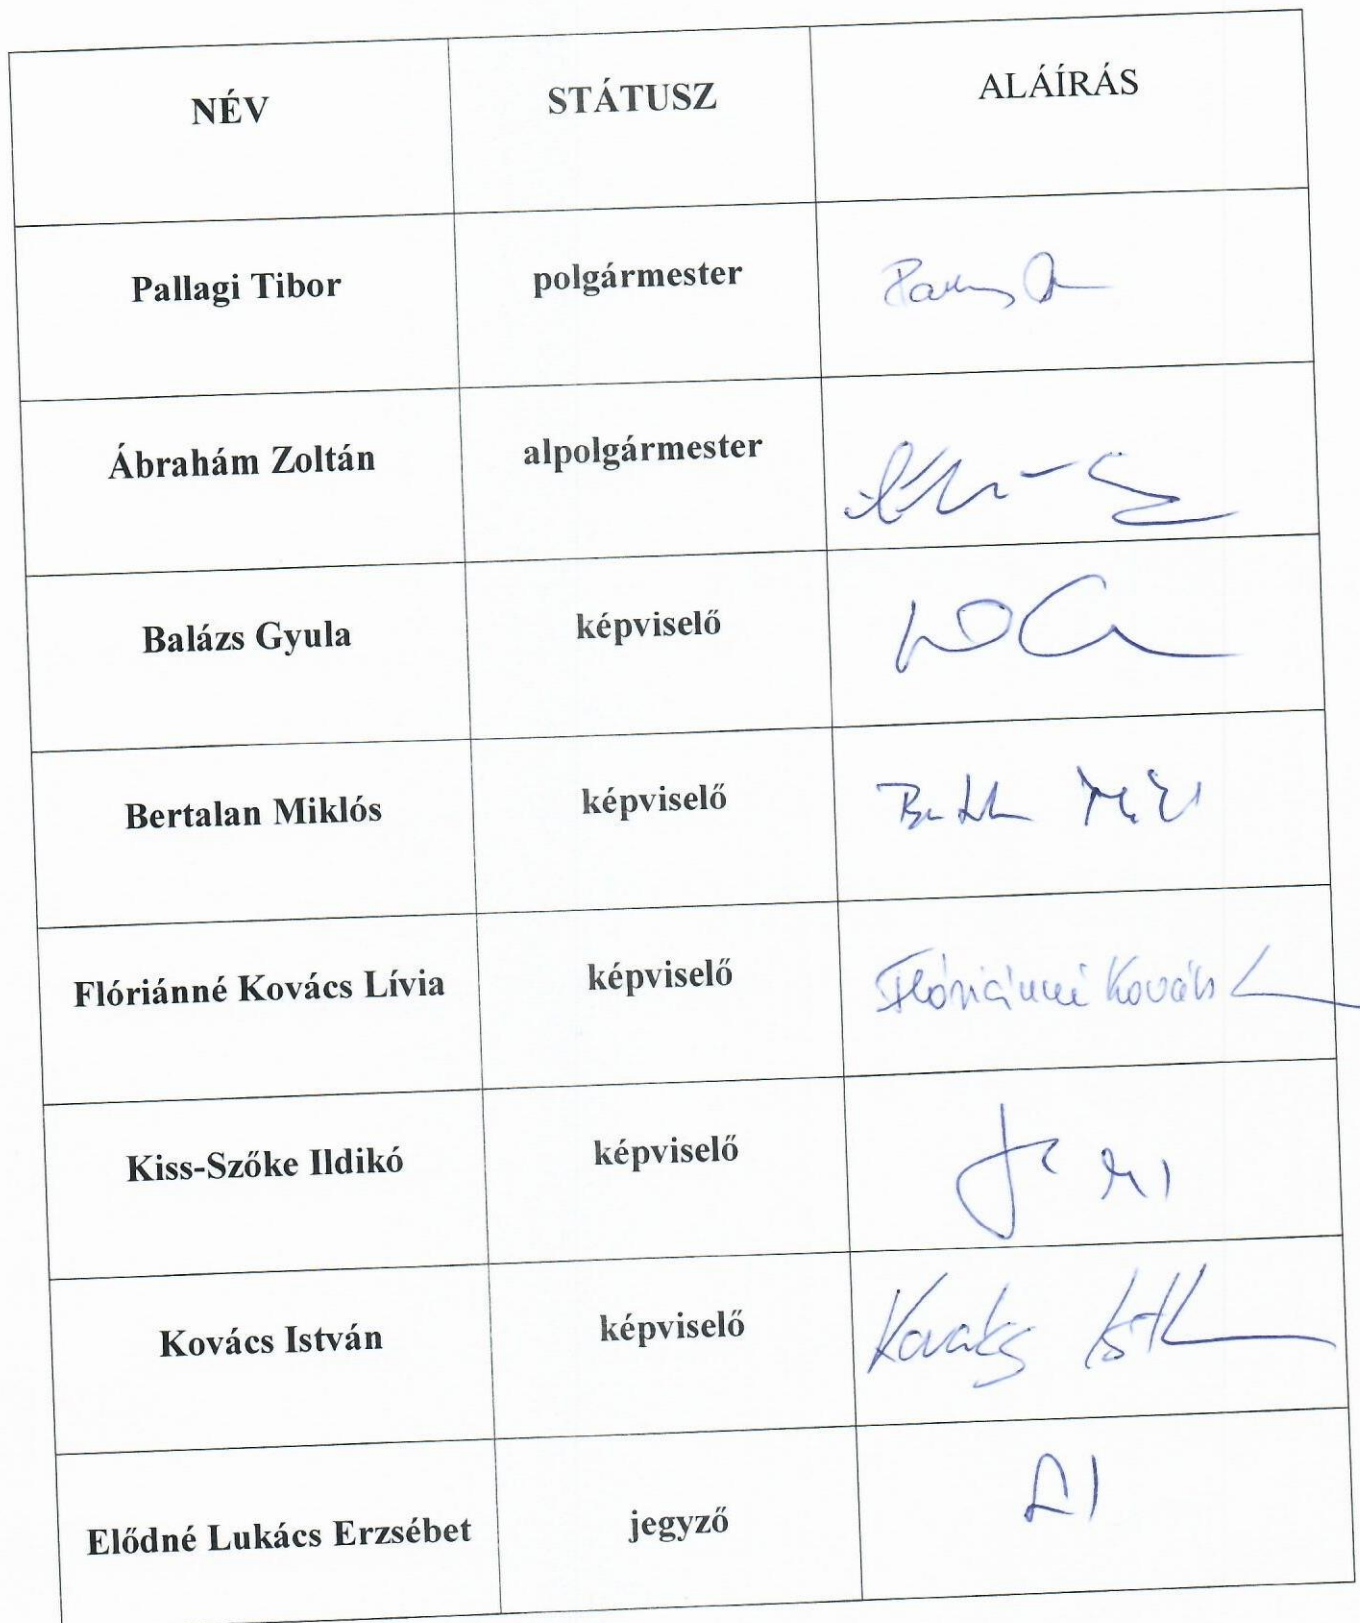 NÉV STÁTUSZ ALÁÍRÁS
Pallagi Tibor polgármester
Ábrahám Zoltán alpolgármester
Balázs Gyula képviselő
Bertalan Miklós képviselő
Flóriánné Kovács Lívia képviselő Flóriánné Kovács L
Kiss-Szőke Ildikó képviselő
Kovács István képviselő Kovács
Elődné Lukács Erzsébet jegyző